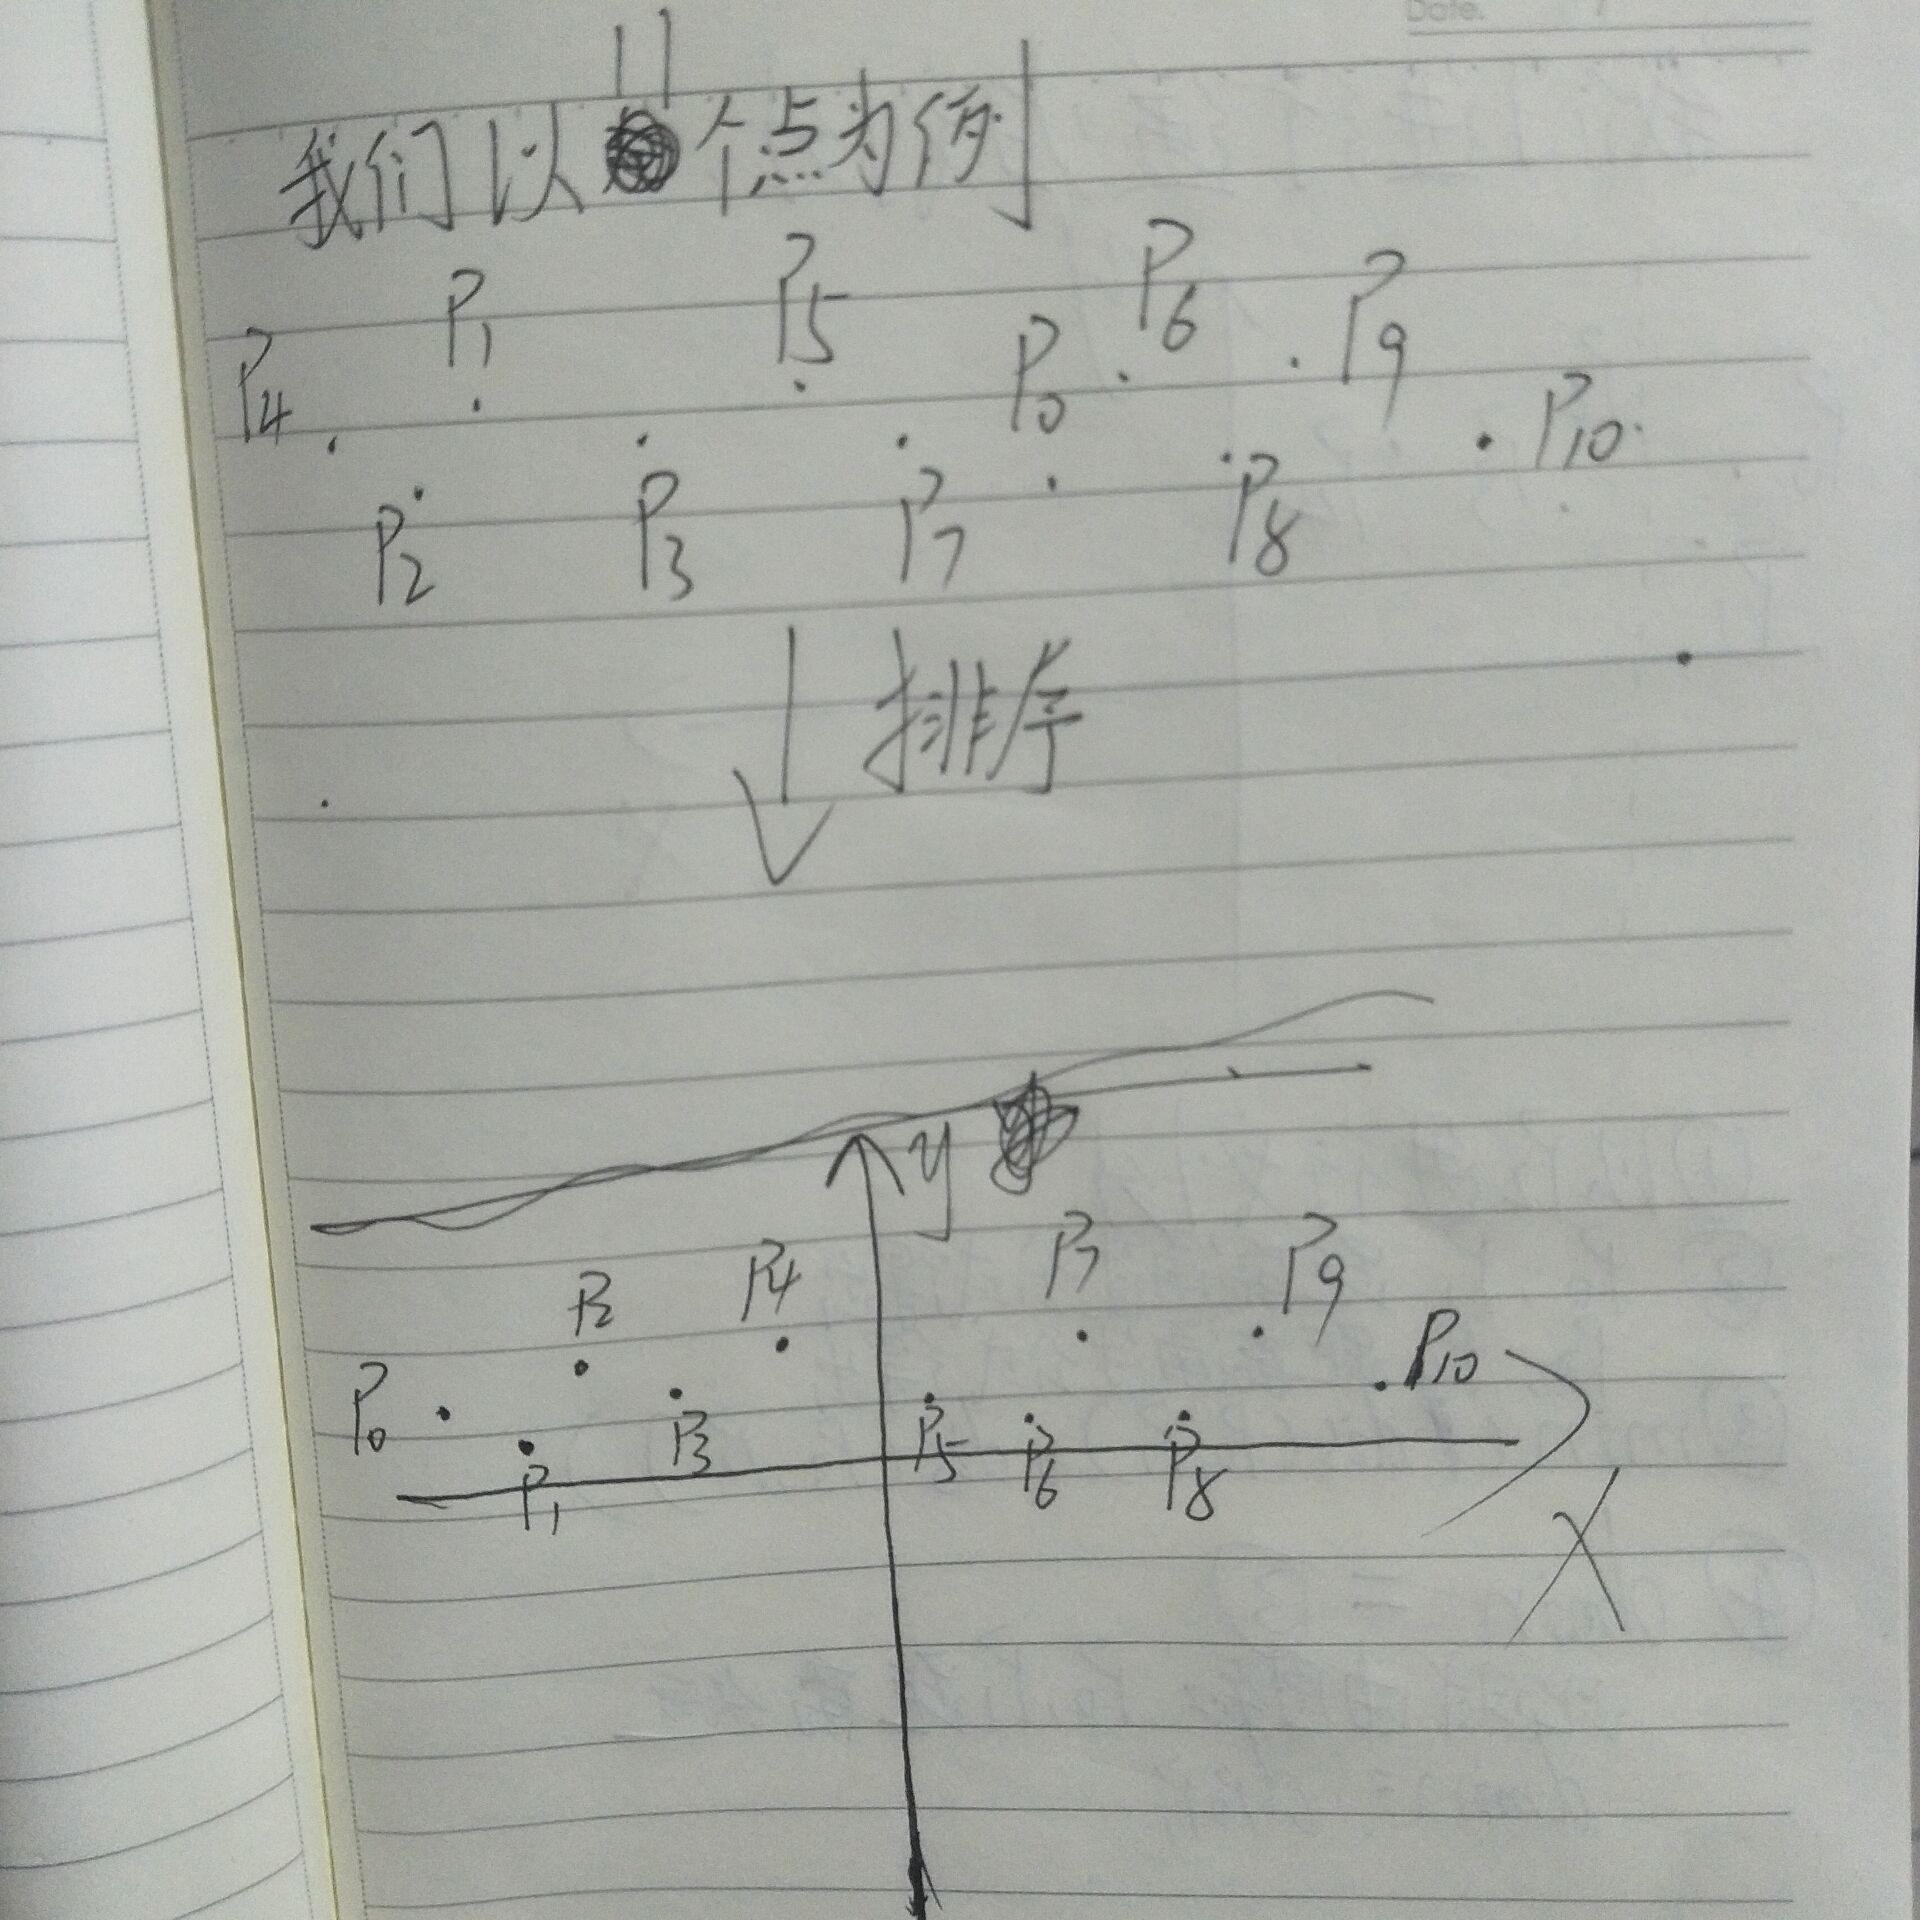 Date.
11
我们以个点为例
P4 P1 P5 P0 P6 P9 P10
P2 P3 P7 P8
排序
y
P0 P2 P4 P7 P9 P10
P1 P3 P5 P6 P8
X